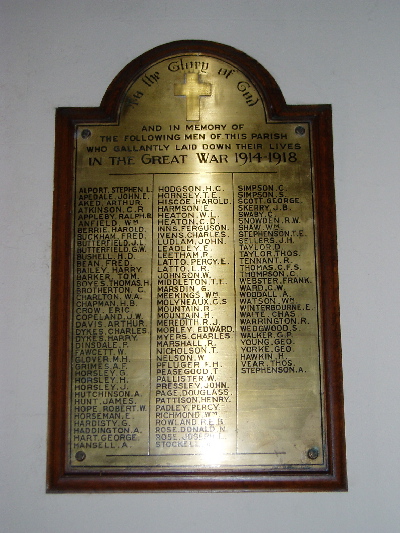 To the Glory of God
AND IN MEMORY OF
THE FOLLOWING MEN OF THIS PARISH
WHO GALLANTLY LAID DOWN THEIR LIVES
IN THE GREAT WAR 1914-1918
ALPORT. STEPHEN L.
APEDALE. JOHN. E.
AKED. ARTHUR.
ATKINSON. C.R.
APPLEBY. RALPH. B.
ANFIELD. WM
BERRIE. HAROLD.
BUCKHAM. FRED.
BUTTERFIELD. J.L.
BUTTERFIELD. G.W.
BUSHELL. H.D.
BEAN. FRED.
BAILEY. HARRY.
BARKER. TOM.
BOYES. THOMAS. H.
BROTHERTON. C.
CHARLTON. W.A.
CHAPMAN. H.B.
CROW. ERIC.
COPELAND. J.W.
DAVIS. ARTHUR.
DYKES. CHARLES.
DYKES. HARRY.
DINSDALE. F.
FAWCETT. W.
GLOVER. M.H.
GRIMES. A.F.
HORSLEY. G.
HORSLEY. H.
HORSLEY. J.
HUTCHINSON. A.
HUNT. JAMES.
HOPE. ROBERT. W.
HORSEMAN. E.
HARDISTY. G.
HADDINGTON. A.
HART. GEORGE.
HANSELL. A.
HODGSON. H.C.
HORNSEY. T.E.
HISCOE. HAROLD.
HARMSON. E.
HEATON. W.L.
HEATON. C.D.
INNS. FERGUSON.
IVENS. CHARLES.
LUDLAM. JOHN.
LEADLEY. E.
LEETHAM. R.
LATTO. PERCY. E.
LATTO. L.R.
JOHNSON. W.
MIDDLETON. T.T.
MARSDIN. G.
MEEKINGS. WM
MOLYNEAUX. C.S
MOUNTAIN. R.
MOUNTAIN. H.
MEREDITH. R.J.
MORLEY. EDWARD.
MYERS. CHARLES.
MARSHALL. R.
NICHOLSON. T.
NELSON. W.
PFLUGER. F.H.
PEASEGOOD. T.
PALLISTER. W.
PRESSLEY. JOHN.
PAGE. DOUGLASS.
PATTISON. HENRY.
PADLEY. PERCY.
RICHMOND. WM
ROWLAND.
ROSE. DONALD. N.
ROSE. JOSEPH.
STOCKELL.
SIMPSON. C.
SIMPSON. S.
SCOTT. GEORGE.
SKERRY. J.B.
SWABY. C.
SNOWDEN. R.W.
SHAW. WM
STEPHENSON. T.E.
SELLERS. J.H.
TAYLOR. D.
TAYLOR. THOS.
TENNANT. R.
THOMAS. C.F.S.
THOMPSON. C.
WEBSTER. FRANK.
WARD. C.N.
WOODALL. V.
WATSON. WM
WINTERBOURNE. E.
WAITE. CHAS
WARRINGTON. R.
WEDGWOOD. S.
WALKER. G.P.
YOUNG. GEO.
YORKE. GEO.
HAWKIN. H.
VEAR. THOS.
STEPHENSON. A.